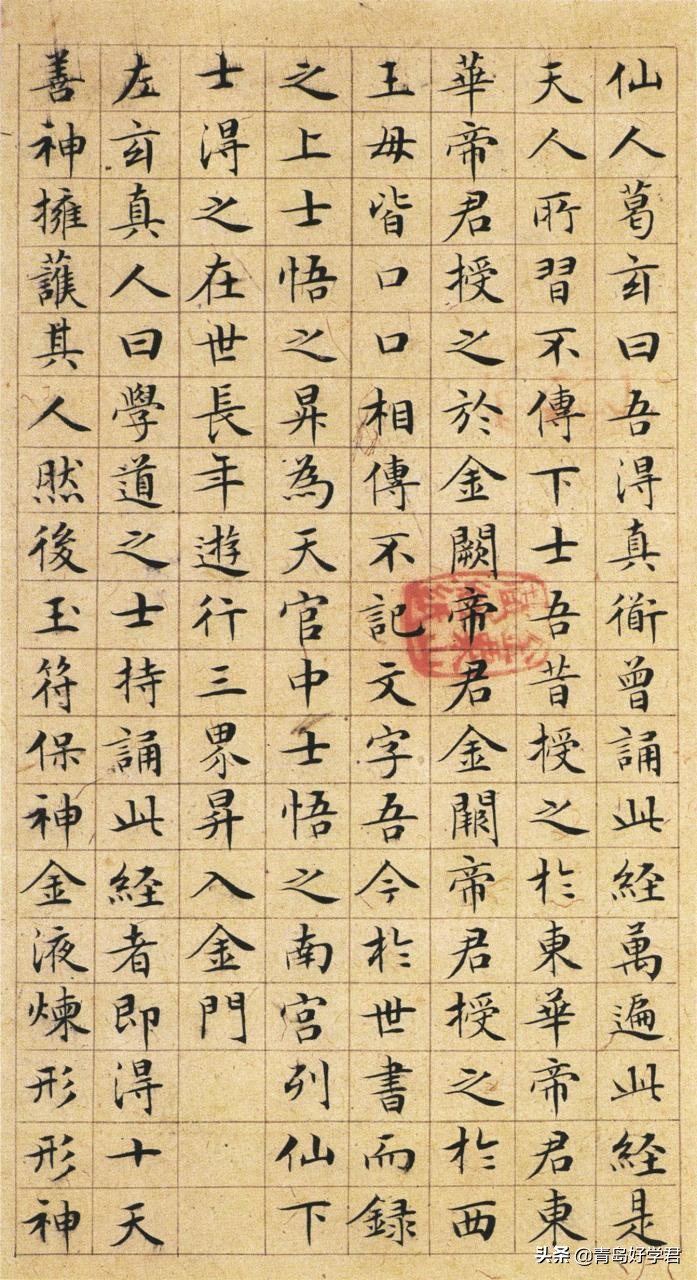 仙人葛玄曰吾得真衜曾誦此経萬遍此経是
天人所習不傳下士吾昔授之於東華帝君東
華帝君授之於金闕帝君金闕帝君授之於西
王母皆口口相傳不記文字吾今於世書而録
之上士悟之昇為天官中士悟之南宮列仙下
士得之在世長年遊行三界昇入金門
左玄真人曰學道之士持誦此経者即得十天
善神擁護其人然後玉符保神金液煉形形神
头条 @青岛好学君